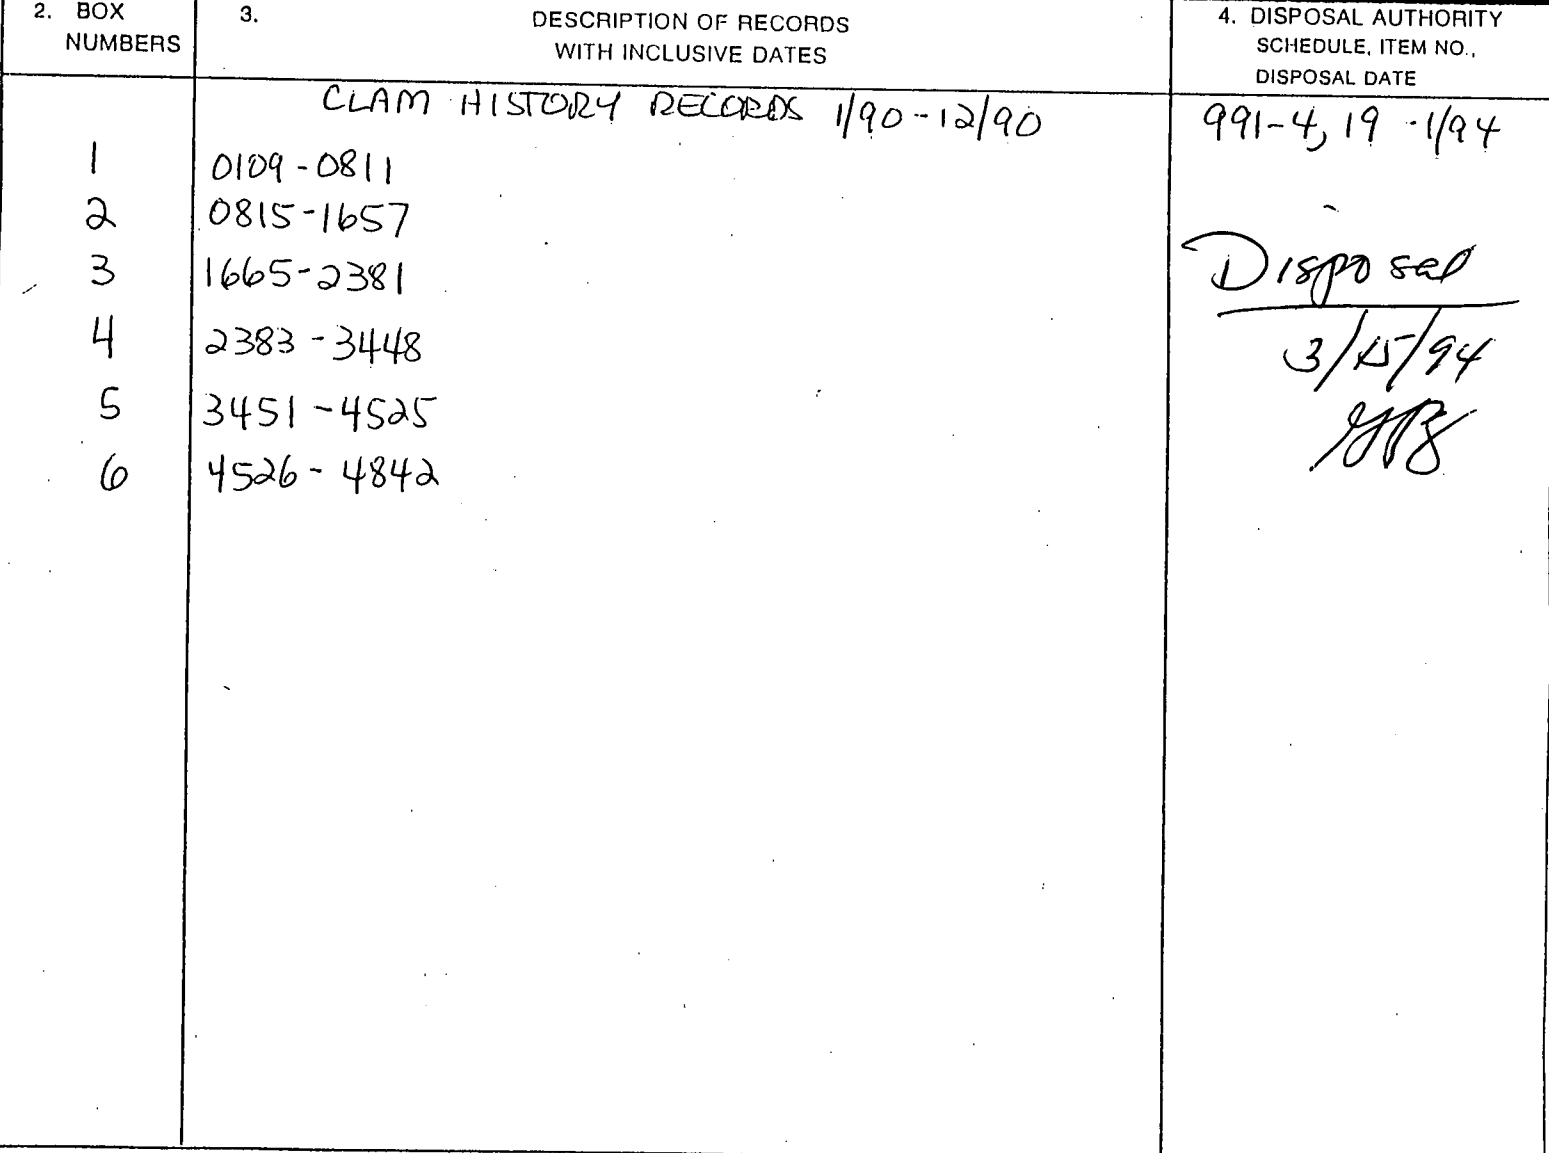 2. BOX NUMBERS
3. DESCRIPTION OF RECORDS
WITH INCLUSIVE DATES
4. DISPOSAL AUTHORITY
SCHEDULE, ITEM NO.,
DISPOSAL DATE
CLAM HISTORY RECORDS 1/90-12/90
991-4, 19 -1/94
1 0109-0811
2 0815-1657
3 1665-2381
4 2383-3448
5 3451-4525
6 4526-4842
Disposal
3/15/94